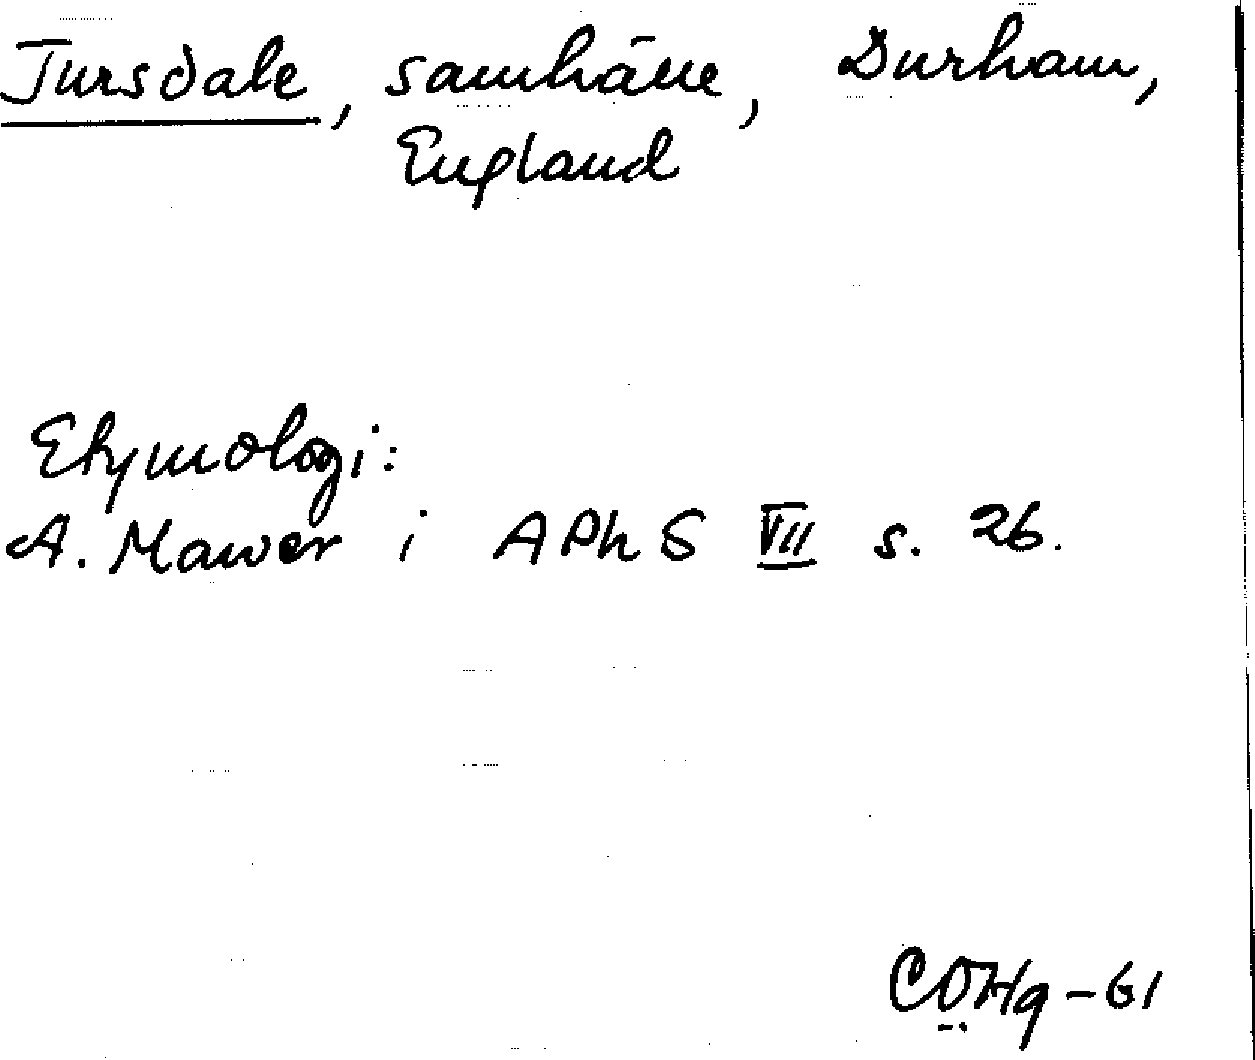 Tursdale, samhälle, Durham,
England
Etymologi:
A. Mawer i APhS VII s. 26.
COHg-61